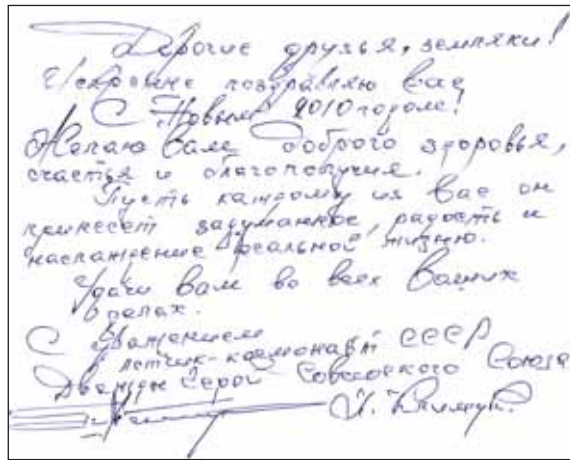 Дорогие друзья, земляки!
Искренне поздравляю Вас
С Новым 2010 годом!
Желаю Вам доброго здоровья,
счастья и благополучия.
Пусть каждому из Вас он
принесет задуманное, радость и
наслаждение реальной жизнью.
Удачи Вам во всех Ваших
делах.
С Уважением
летчик-космонавт СССР
Дважды Герой Советского Союза
П. Климук.